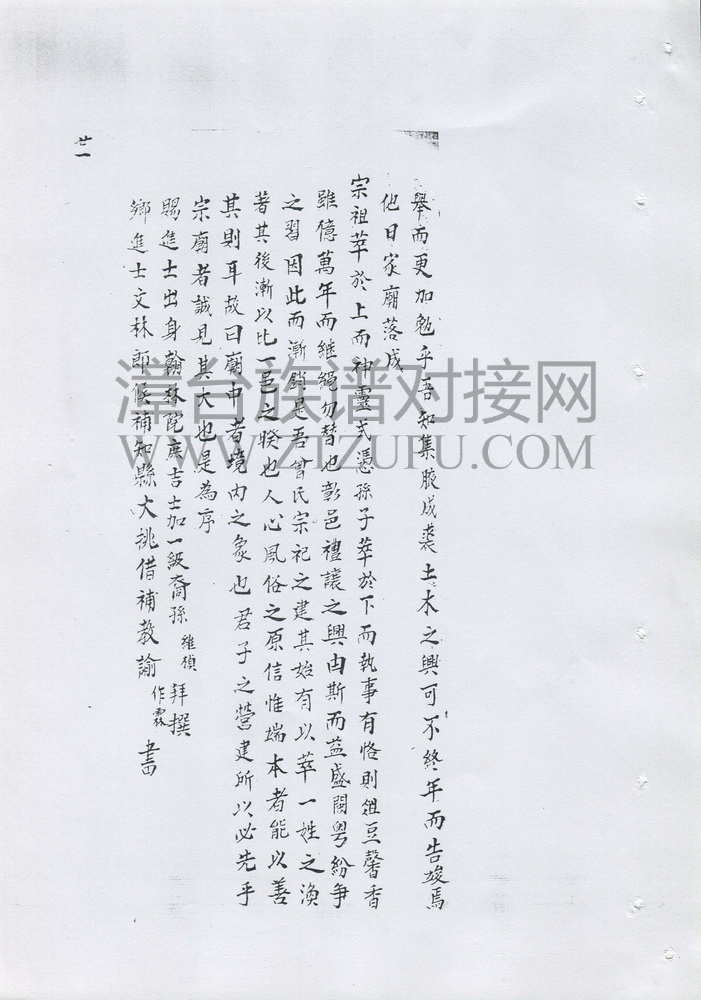 舉而更加勉乎吾知集腋成裘土木之興可不終年而告竣焉
他日家廟落成
宗祖萃於上而神靈式憑孫子萃於下而執事有恪則俎豆馨香
雖億萬年而継繩勿替也彰邑禮讓之興由斯而益盛閩粤紛爭
之習因此而漸銷是吾曾氏宗祀之建其始有以萃一姓之渙
者其後漸以比一邑之暌也人心風俗之原信惟端本者能以善
其則耳故曰廟中者境内之象也君子之營建所以必先乎
宗廟者誠見其大也是為序
賜進士出身翰林院庶吉士加一級裔孫維楨拜撰
鄉進士文林郎候補知縣大挑借補教諭作霖書
廿一
漳台族谱对接网
WWW.ZTZUPU.COM